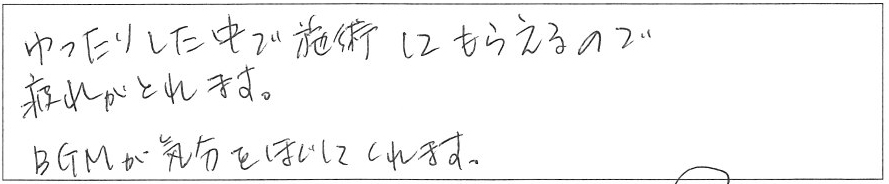 ゆったりした中で施術してもらえるので
疲れがとれます。
BGMが気分をほぐしてくれます。